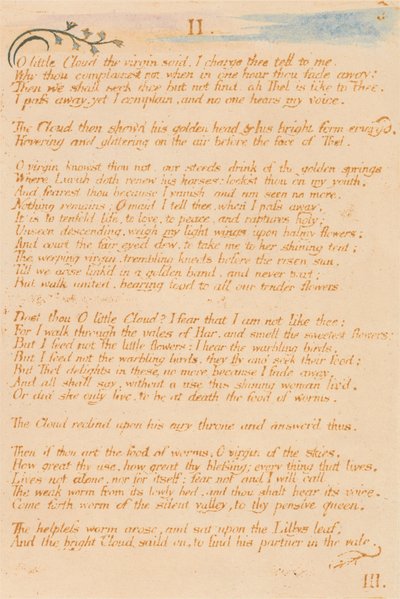 II.
O little Cloud the virgin said, I charge thee tell to me,
Why thou complainest not when in one hour thou fade away:
Then we shall seek thee but not find: ah Thel is like to Thee.
I pass away, yet I complain, and no one hears my voice.
The Cloud then shew'd his golden head & his bright form emerg'd,
Hovering and glittering on the air before the face of Thel.
O virgin know'st thou not. our steeds drink of the golden springs
Where Luvah doth renew his horses: look'st thou on my youth,
And fearest thou because I vanish and am seen no more.
Nothing remains; O maid I tell thee, when I pass away,
It is to tenfold life, to love, to peace, and raptures holy:
Unseen descending, weigh my light wings upon balmy flowers;
And court the fair eyed dew, to take me to her shining tent;
The weeping virgin, trembling kneels before the risen sun,
Till we arise link'd in a golden band, and never part;
But walk united, bearing food to all our tender flowers
Dost thou O little Cloud? I fear that I am not like thee;
For I walk through the vales of Har, and smell the sweetest flowers;
But I feed not the little flowers: I hear the warbling birds,
But I feed not the warbling birds, they fly and seek their food;
But Thel delights in these no more because I fade away,
And all shall say, without a use this shining woman liv'd,
Or did she only live. to be at death the food of worms.
The Cloud reclind upon his airy throne and answer'd thus.
Then if thou art the food of worms, O virgin of the skies,
How great thy use, how great thy blessing; every thing that lives,
Lives not alone, nor for itself: fear not and I will call
The weak worm from its lowly bed, and thou shalt hear its voice.
Come forth worm of the silent valley, to thy pensive queen.
The helpless worm arose, and sat upon the Lillys leaf,
And the bright Cloud saild on, to find his partner in the vale.
III.